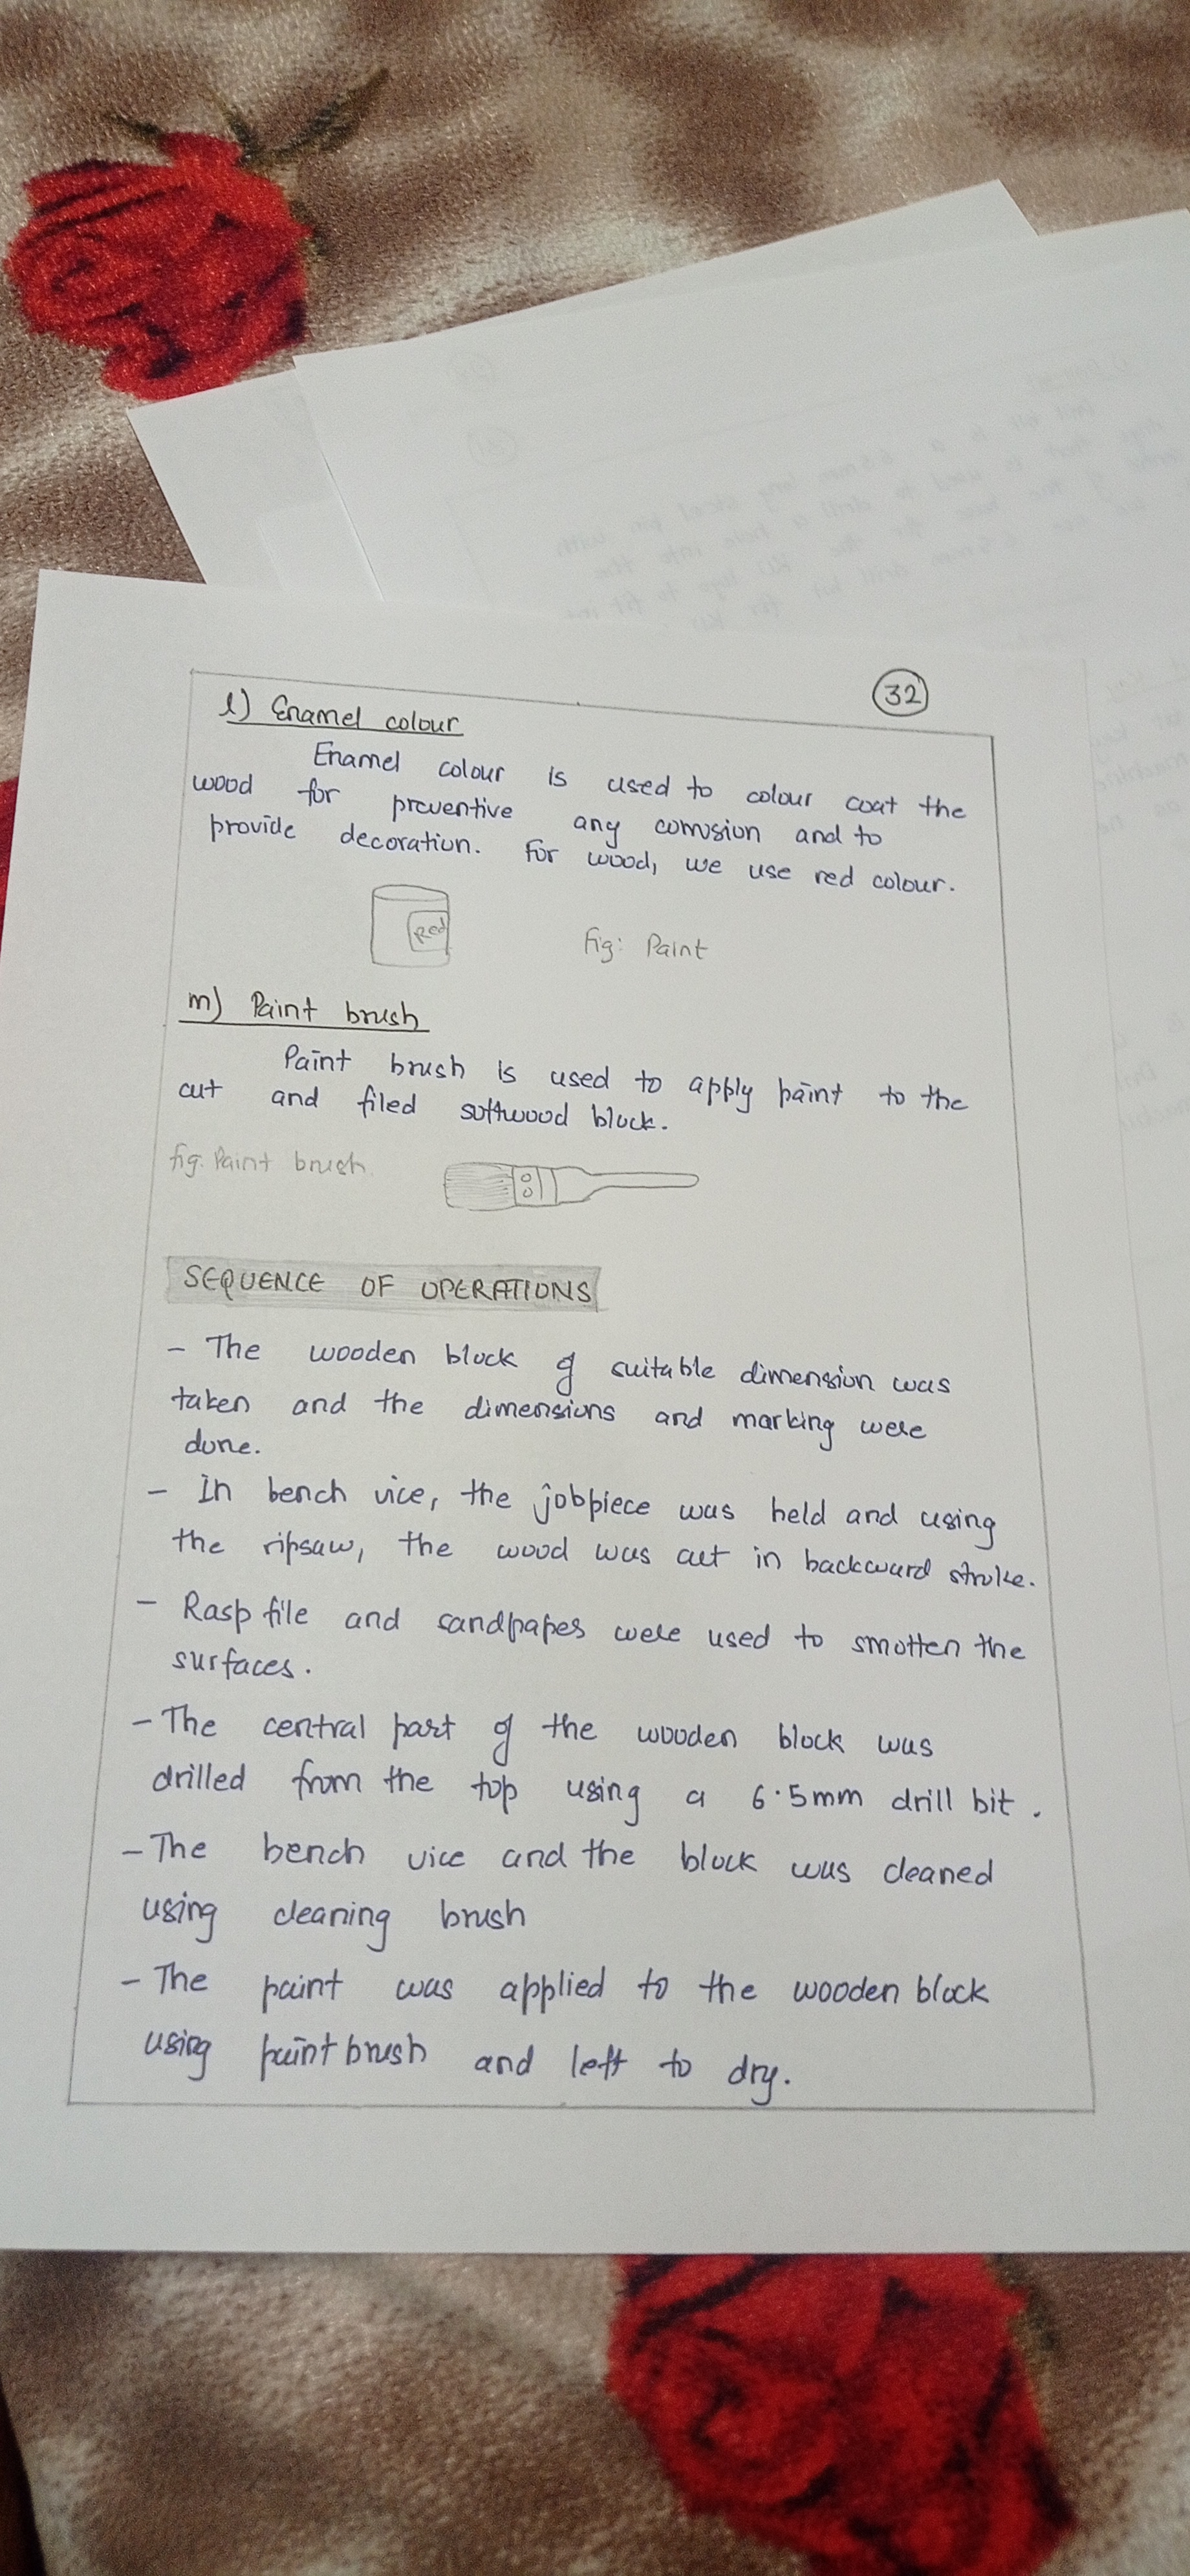 32
l) Enamel colour
Enamel colour is used to colour coat the
wood for preventive any corrosion and to
provide decoration. For wood, we use red colour.
Red
Fig: Paint
m) Paint brush
Paint brush is used to apply paint to the
cut and filed softwood block.
fig. Paint brush
SEQUENCE OF OPERATIONS
- The wooden block of suitable dimension was
taken and the dimensions and marking were
done.
- In bench vice, the jobpiece was held and using
the ripsaw, the wood was cut in backward stroke.
- Rasp file and sandpapes were used to smotten the
surfaces.
- The central part of the wooden block was
drilled from the top using a 6.5mm drill bit.
- The bench vice and the block was cleaned
using cleaning brush
- The paint was applied to the wooden block
using paintbrush and left to dry.